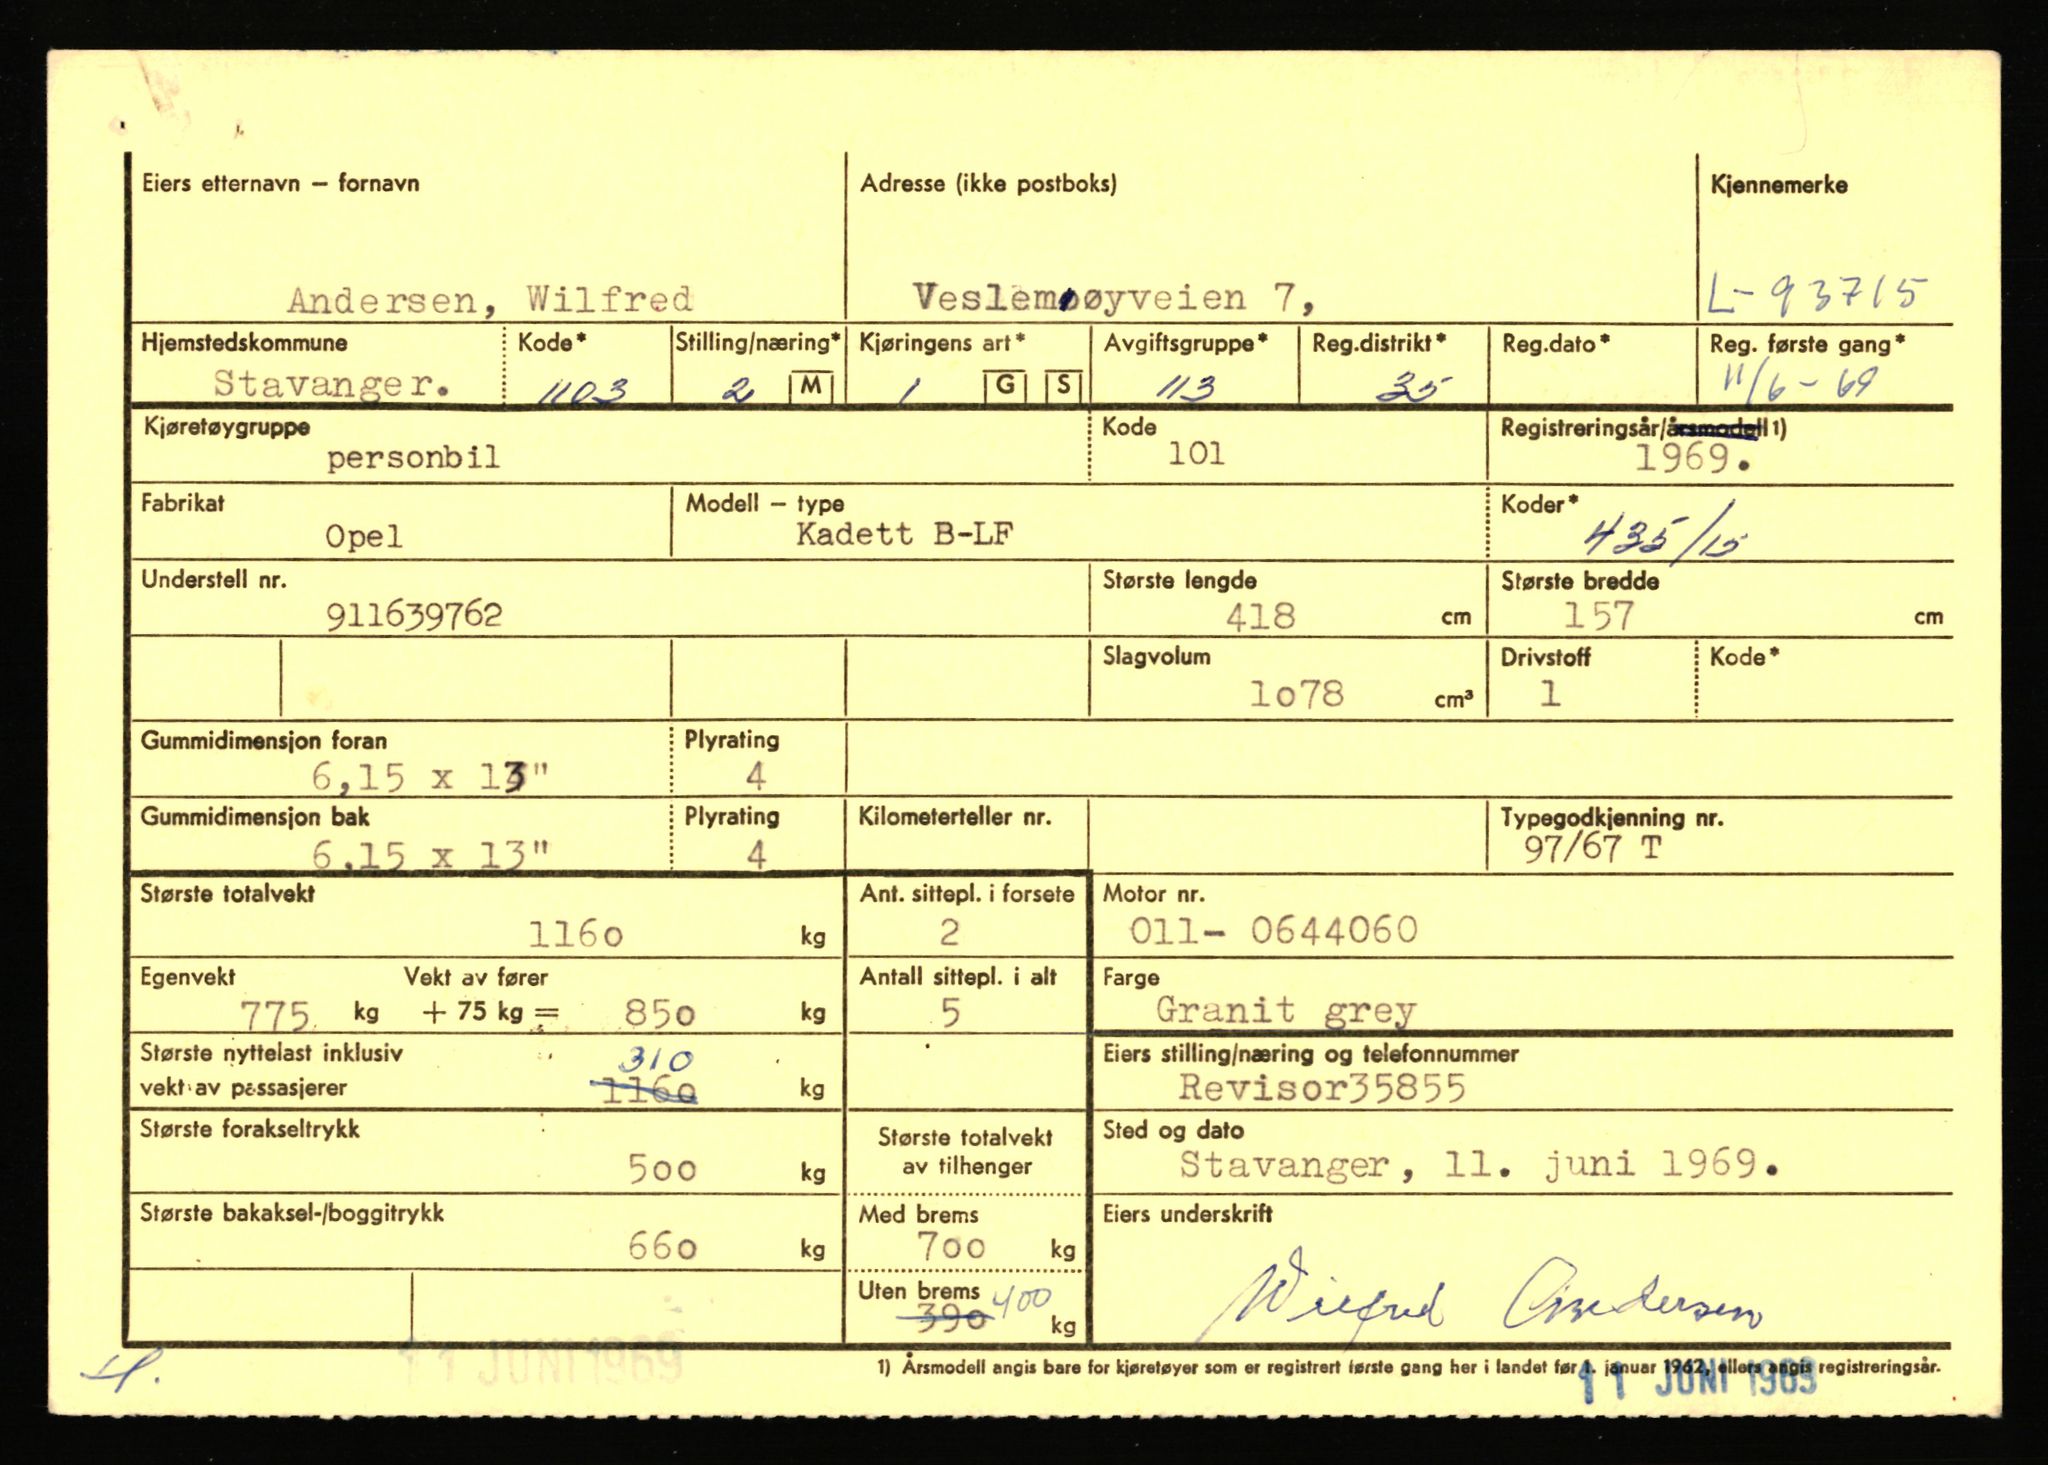 Eiers etternavn – fornavn Adresse (ikke postboks) Kjennemerke
Andersen, Wilfred Veslemøyveien 7, L-93715
Hjemstedskommune Kode* Stilling/næring* Kjøringens art* Avgiftsgruppe* Reg.distrikt* Reg.dato* Reg. første gang*
Stavanger. 1103 2 M 1 G S 113 35 11/6-69
Kjøretøygruppe Kode Registreringsår/årsmodell 1)
personbil 101 1969.
Fabrikat Modell – type Koder*
Opel Kadett B-LF 435/15
Understell nr. Største lengde Største bredde
911639762 418 cm 157 cm
Slagvolum Drivstoff Kode*
1o78 cm³ 1
Gummidimensjon foran Plyrating
6,15 x 13" 4
Gummidimensjon bak Plyrating Kilometerteller nr. Typegodkjenning nr.
6.15 x 13" 4 97/67 T
Største totalvekt Ant. sittepl. i forsete Motor nr.
116o kg 2 011- 0644060
Egenvekt Vekt av fører Antall sittepl. i alt Farge
775 kg + 75 kg = 85o kg 5 Granit grey
Største nyttelast inklusiv 310 Eiers stilling/næring og telefonnummer
vekt av passasjerer 116o kg Revisor35855
Største forakseltrykk Største totalvekt Sted og dato
500 kg av tilhenger Stavanger, 11. juni 1969.
Største bakaksel-/boggitrykk Med brems Eiers underskrift
66o kg 7oo kg
Uten brems 400 Wilfred Andersen
39o kg
11 JUNI 1969 1) Årsmodell angis bare for kjøretøyer som er registrert første gang her i landet før 1. januar 1962, ellers angis registreringsår.
11 JUNI 1969